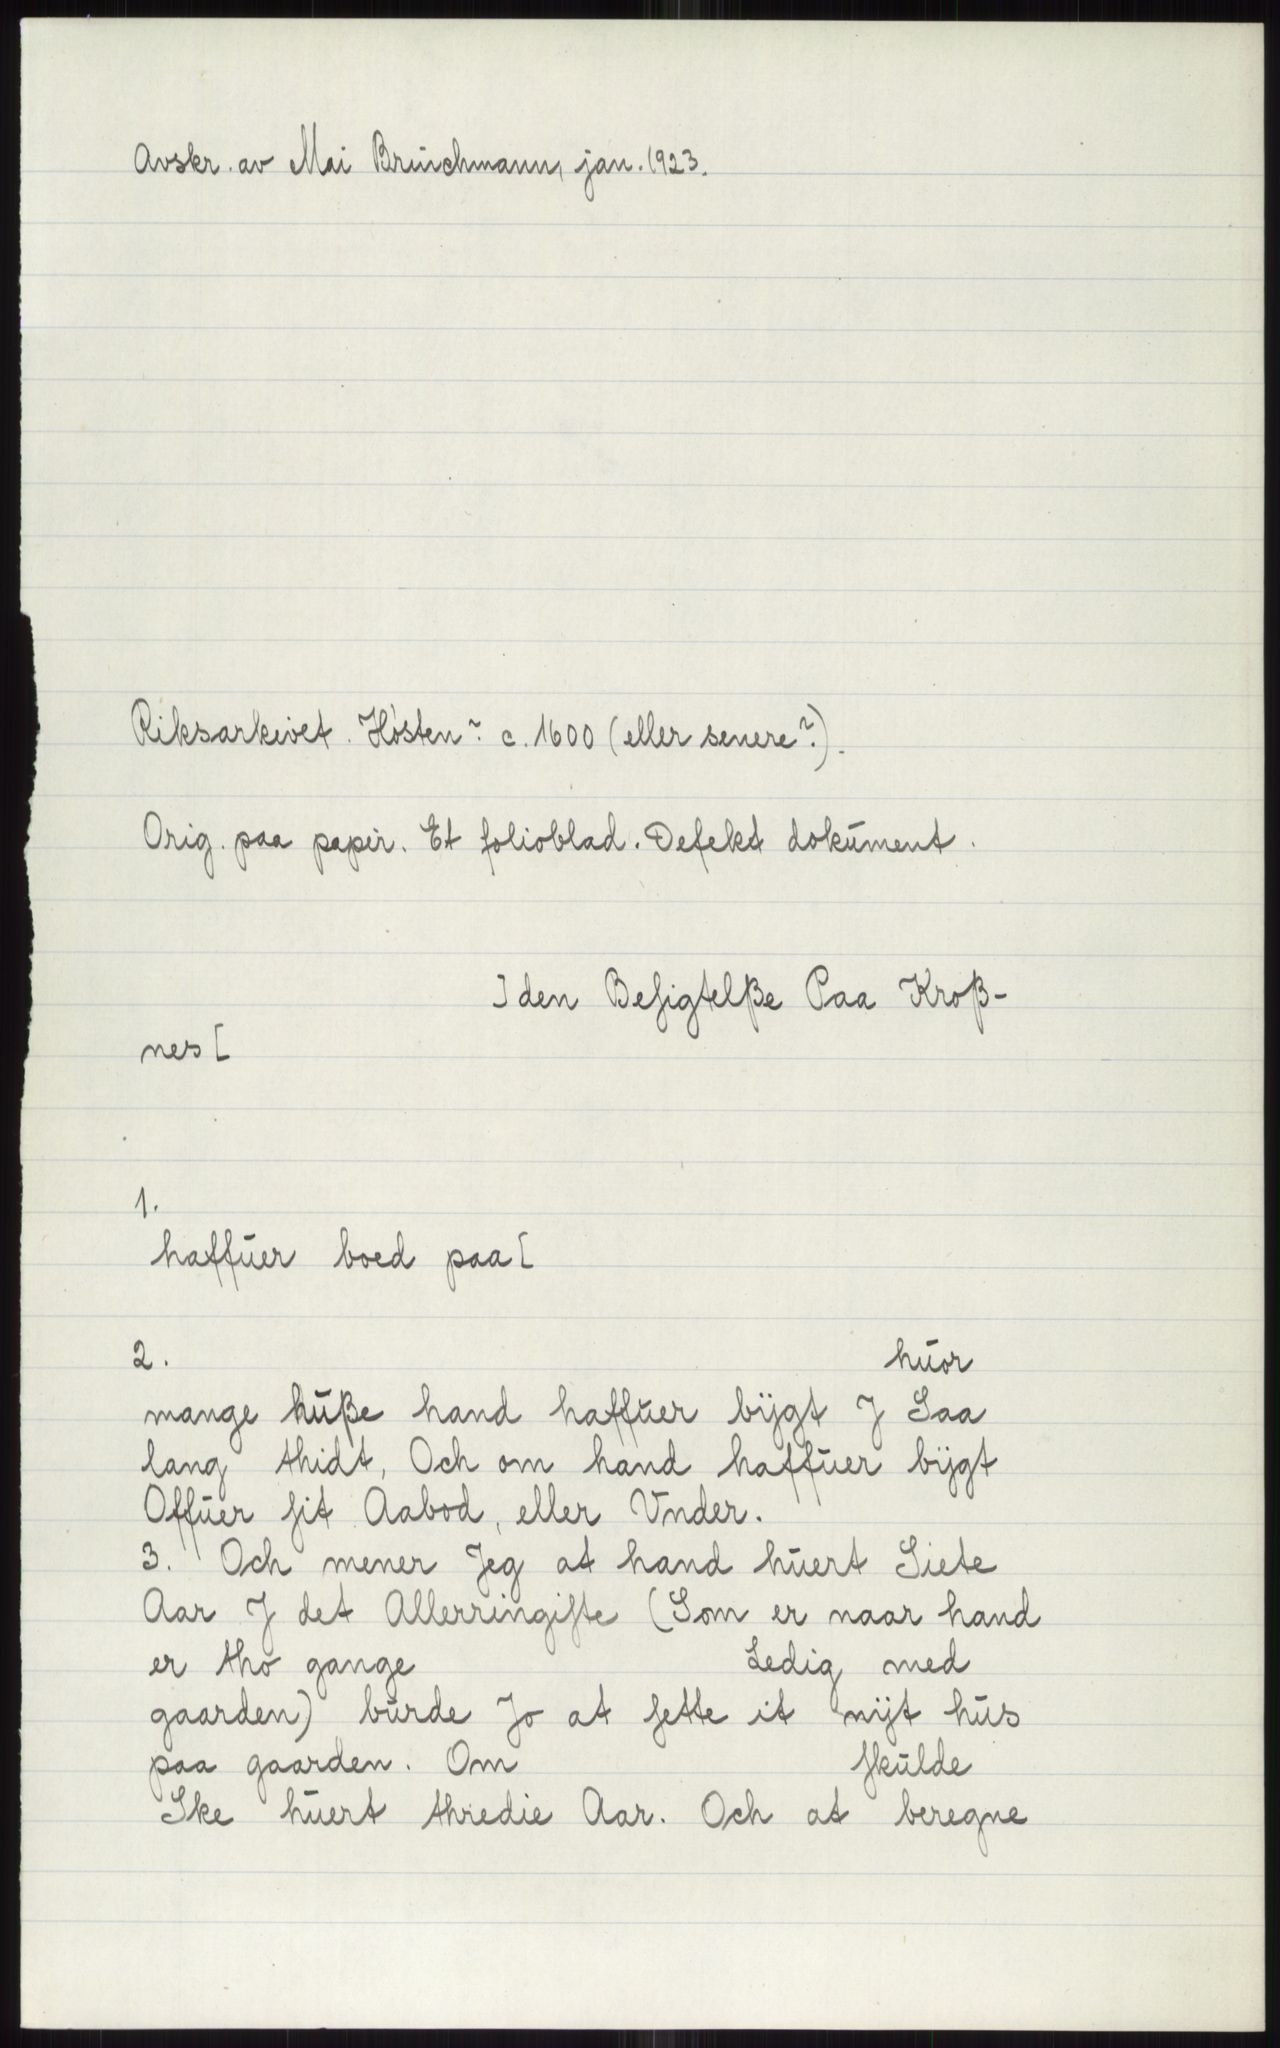 Avskr. av Mai Brūchmann, jan. 1923.
Riksarkivet. Høsten? c. 1600 (eller senere?).
Orig. paa papir. Et folioblad. Defekt dokūment.
] den Beſigtelße Paa Kroß-
nes [
1.
haffūer boed paa [
2. hūor
mange hūße hand haffūer bÿgt J Saa
lang thidt, Och om hand haffūer bÿgt
Offūer ſit Aabod, eller Vnder.
3. Och mener Jeg at hand hūert Siete
Aar J det Allerringiſte (Som er naar hand
er tho gange Ledig med
gaarden) būrde Jo at ſette it nÿt hūs
paa gaarden. Om ſkūlde
Ske hūert thredie Aar. Och at beregne